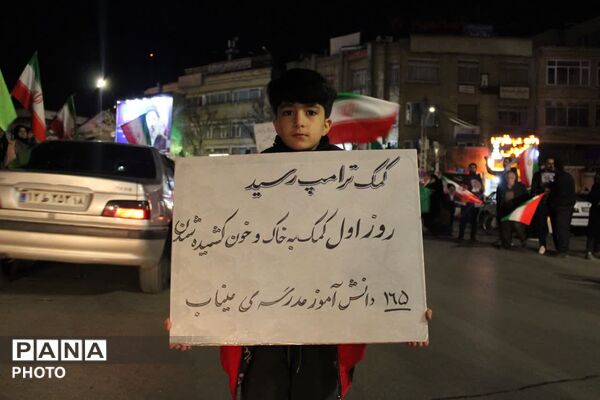 کمک ترامپ رسید
روز اول کمک به خاک و خون کشیده شدن
۱۶۵ دانش آموز مدرسه ی میناب
PANA
PHOTO